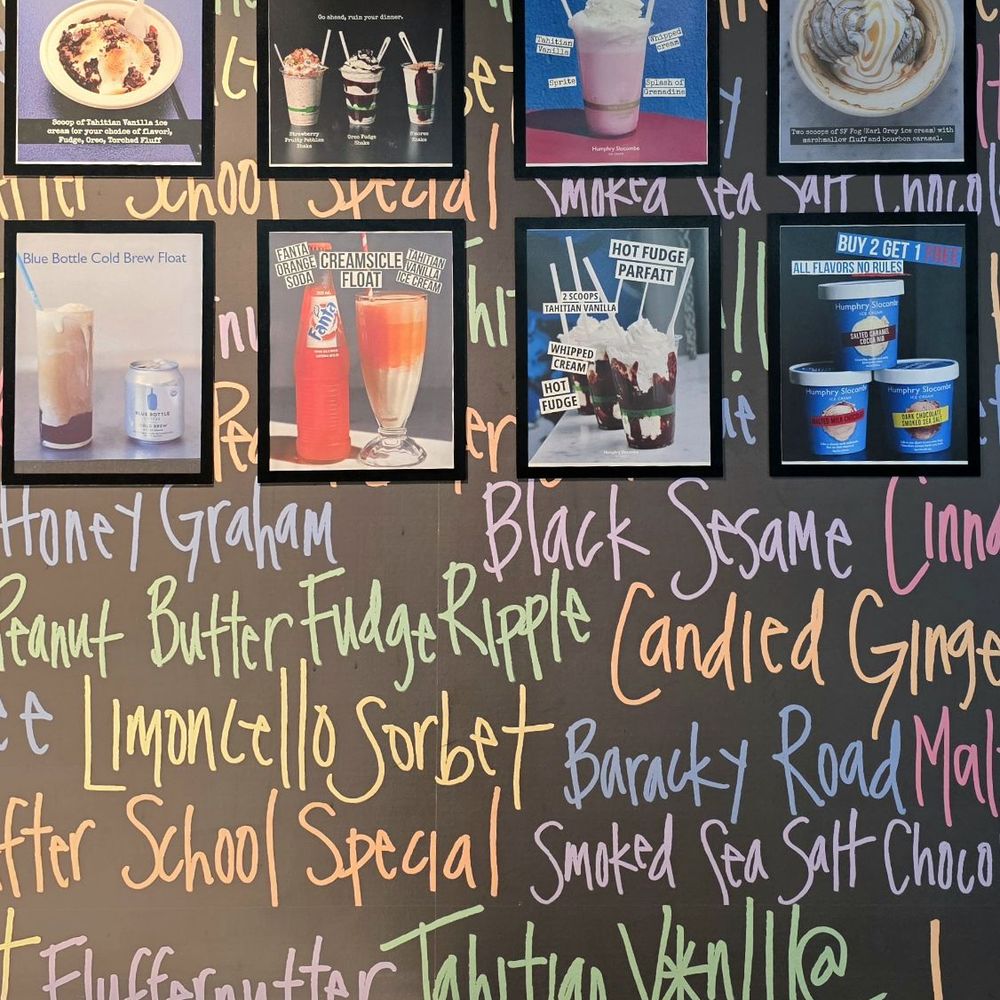 Go ahead, ruin your dinner.
Tahitian
Vanilla
Whipped
cream
Sprite
Splash of
Grenadine
Scoop of Tahitian Vanilla ice
cream (or your choice of flavor),
Fudge, Oreo, Torched Fluff
Strawberry
Fruity Pebbles
Shake
Oreo Fudge
Shake
S'mores
Shake
Humphry Slocombe
ICE CREAM
Two scoops of SF Fog (Earl Grey ice cream) with
marshmallow fluff and bourbon caramel.
After School Special
Smoked Sea Salt Chocol
Blue Bottle Cold Brew Float
BLUE BOTTLE
COFFEE
COLD BREW
FANTA
ORANGE
SODA
CREAMSICLE
FLOAT
TAHITIAN
VANILLA
ICE CREAM
Fanta
HOT FUDGE
PARFAIT
2 SCOOPS
TAHITIAN VANILLA
WHIPPED
CREAM
HOT
FUDGE
Humphry Slocombe
BUY 2 GET 1 FREE
ALL FLAVORS NO RULES
Humphry Slocombe
ICE CREAM
SALTED CARAMEL
COCOA NIB
Humphry Slocombe
ICE CREAM
MALTED MILK CHOCOLATE
Humphry Slocombe
ICE CREAM
DARK CHOCOLATE
SMOKED SEA SALT
Honey Graham
Black Sesame
Cinna
Peanut Butter Fudge Ripple
Candied Ginge
ee
Limoncello Sorbet
Baracky Road
Malt
After School Special
Smoked Sea Salt Choco
t
Fluffernutter
Tahitian V*nll@